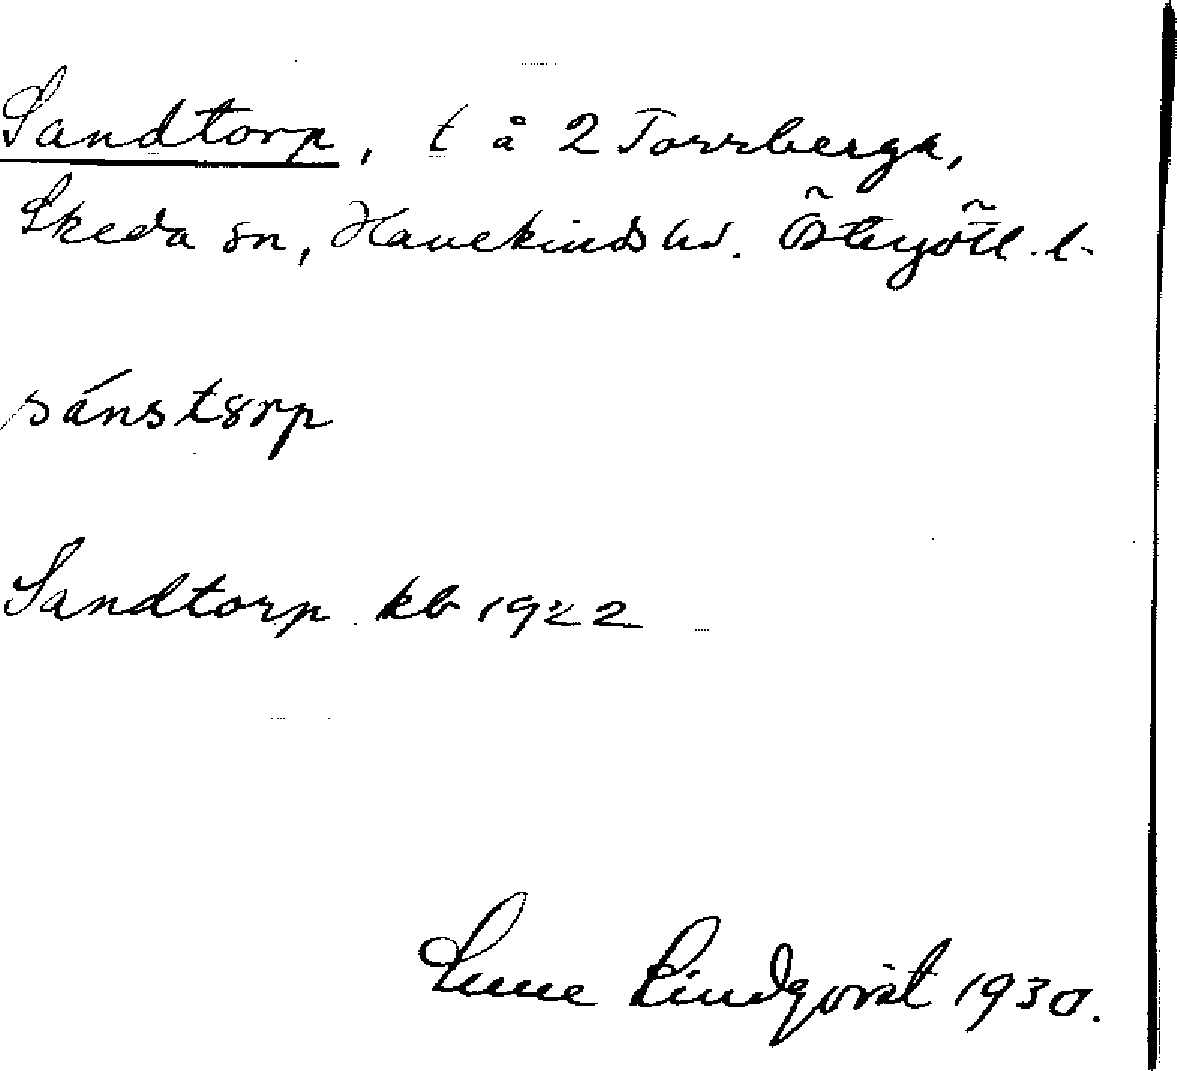 Sandtorp, t å 2 Torrberga,
Skeda sn, Hanekinds hd. Östergötl. l.
sánstorp
Sandtorp kb 1922
Sune Lindqvist 1930.